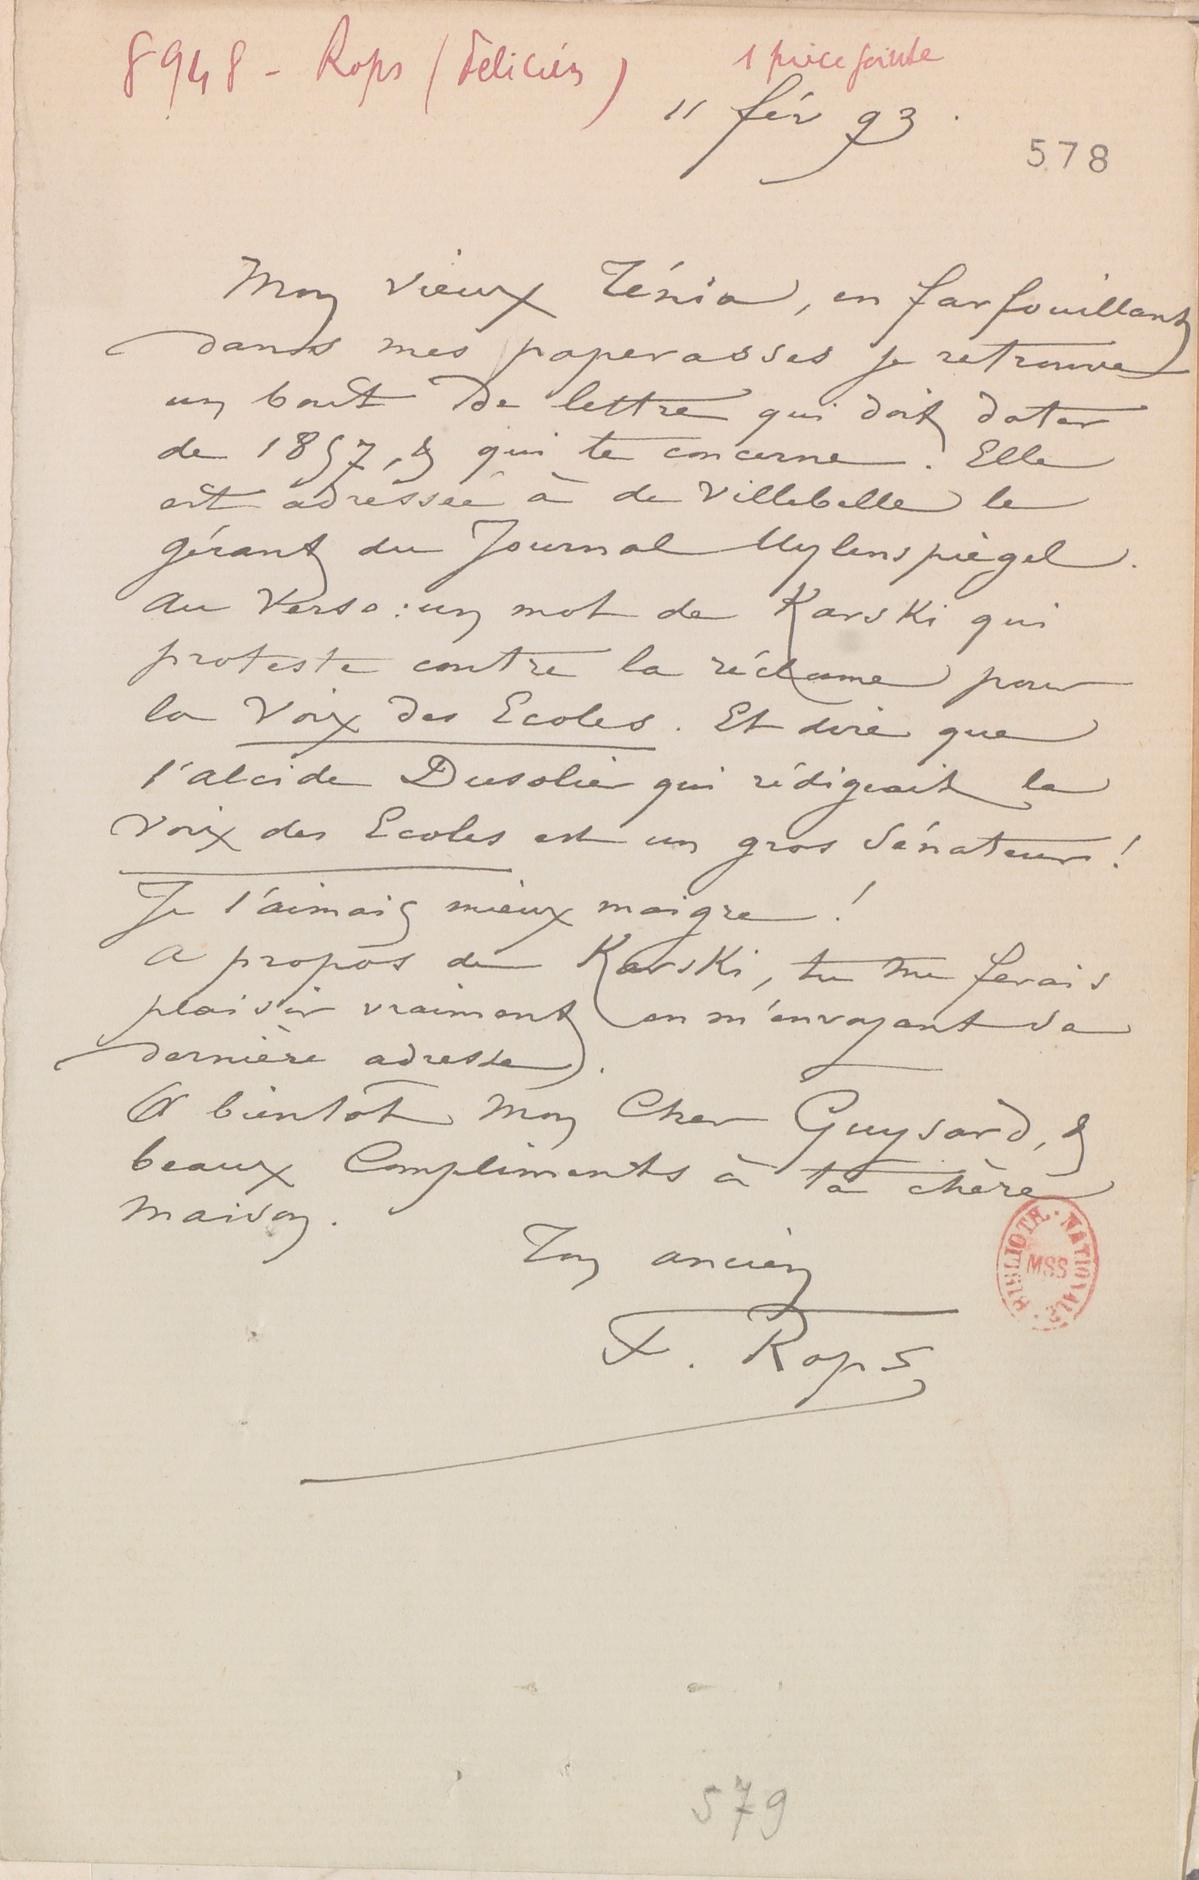 8948 - Rops (Félicien)
1 pièce jointe
11 fév 93.
578
Mon vieux Ténia, en farfouillant
dans mes paperasses je retrouve
un bout de lettre qui doit dater
de 1857, & qui te concerne. Elle
est adressée à de Villebelle le
gérant du Journal Uylenspiègel.
Au verso : un mot de Karski qui
proteste contre la réclame pour
la Voix des Ecoles. Et dire que
l'alcide Dusolier qui rédigeait la
Voix des Ecoles est un gros Sénateur !
Je l'aimais mieux maigre !
A propos de Karski, tu me ferais
plaisir vraiment en m'envoyant sa
dernière adresse.
A bientôt mon Cher Guysard, &
beaux Compliments à ta chère
maison.
Ton ancien
F. Rops
BIBLIOTH. NATIONALE
MSS
579